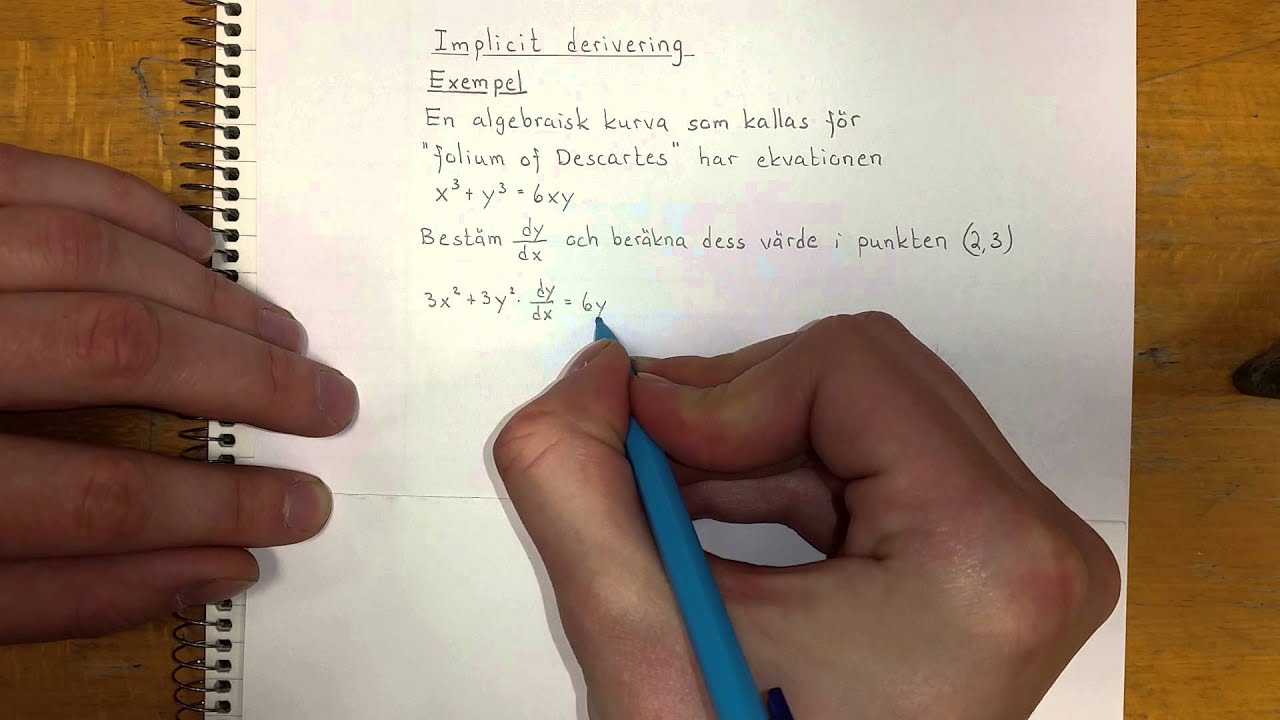 Implicit derivering
Exempel
En algebraisk kurva som kallas för
"folium of Descartes" har ekvationen
x³ + y³ = 6xy
Bestäm dy/dx och beräkna dess värde i punkten (2,3)
3x² + 3y² · dy/dx = 6y